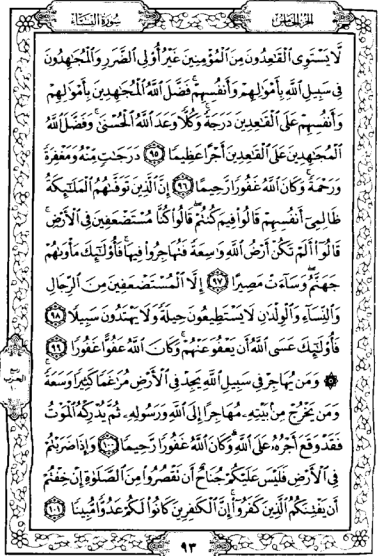 الجزء الخامس
سورة النساء
لَّا يَسْتَوِى ٱلْقَـٰعِدُونَ مِنَ ٱلْمُؤْمِنِينَ غَيْرُ أُو۟لِى ٱلضَّرَرِ وَٱلْمُجَـٰهِدُونَ
فِى سَبِيلِ ٱللَّهِ بِأَمْوَٰلِهِمْ وَأَنفُسِهِمْ ۚ فَضَّلَ ٱللَّهُ ٱلْمُجَـٰهِدِينَ بِأَمْوَٰلِهِمْ
وَأَنفُسِهِمْ عَلَى ٱلْقَـٰعِدِينَ دَرَجَةً ۚ وَكُلًّا وَعَدَ ٱللَّهُ ٱلْحُسْنَىٰ ۚ وَفَضَّلَ ٱللَّهُ
ٱلْمُجَـٰهِدِينَ عَلَى ٱلْقَـٰعِدِينَ أَجْرًا عَظِيمًا ٩٥ دَرَجَـٰتٍ مِّنْهُ وَمَغْفِرَةً
وَرَحْمَةً ۚ وَكَانَ ٱللَّهُ غَفُورًا رَّحِيمًا ٩٦ إِنَّ ٱلَّذِينَ تَوَفَّىٰهُمُ ٱلْمَلَـٰٓئِكَةُ
ظَالِمِىٓ أَنفُسِهِمْ قَالُوا۟ فِيمَ كُنتُمْ ۖ قَالُوا۟ كُنَّا مُسْتَضْعَفِينَ فِى ٱلْأَرْضِ ۚ
قَالُوٓا۟ أَلَمْ تَكُنْ أَرْضُ ٱللَّهِ وَٰسِعَةً فَتُهَاجِرُوا۟ فِيهَا ۚ فَأُو۟لَـٰٓئِكَ مَأْوَىٰهُمْ
جَهَنَّمُ ۖ وَسَآءَتْ مَصِيرًا ٩٧ إِلَّا ٱلْمُسْتَضْعَفِينَ مِنَ ٱلرِّجَالِ
وَٱلنِّسَآءِ وَٱلْوِلْدَٰنِ لَا يَسْتَطِيعُونَ حِيلَةً وَلَا يَهْتَدُونَ سَبِيلًا ٩٨
فَأُو۟لَـٰٓئِكَ عَسَى ٱللَّهُ أَن يَعْفُوَ عَنْهُمْ ۚ وَكَانَ ٱللَّهُ عَفُوًّا غَفُورًا ٩٩
۞ وَمَن يُهَاجِرْ فِى سَبِيلِ ٱللَّهِ يَجِدْ فِى ٱلْأَرْضِ مُرَٰغَمًا كَثِيرًا وَسَعَةً ۚ
وَمَن يَخْرُجْ مِنۢ بَيْتِهِۦ مُهَاجِرًا إِلَى ٱللَّهِ وَرَسُولِهِۦ ثُمَّ يُدْرِكْهُ ٱلْمَوْتُ
فَقَدْ وَقَعَ أَجْرُهُۥ عَلَى ٱللَّهِ ۗ وَكَانَ ٱللَّهُ غَفُورًا رَّحِيمًا ١٠٠ وَإِذَا ضَرَبْتُمْ
فِى ٱلْأَرْضِ فَلَيْسَ عَلَيْكُمْ جُنَاحٌ أَن تَقْصُرُوا۟ مِنَ ٱلصَّلَوٰةِ إِنْ خِفْتُمْ
أَن يَفْتِنَكُمُ ٱلَّذِينَ كَفَرُوٓا۟ ۚ إِنَّ ٱلْكَـٰفِرِينَ كَانُوا۟ لَكُمْ عَدُوًّا مُّبِينًا ١٠١
٩٣